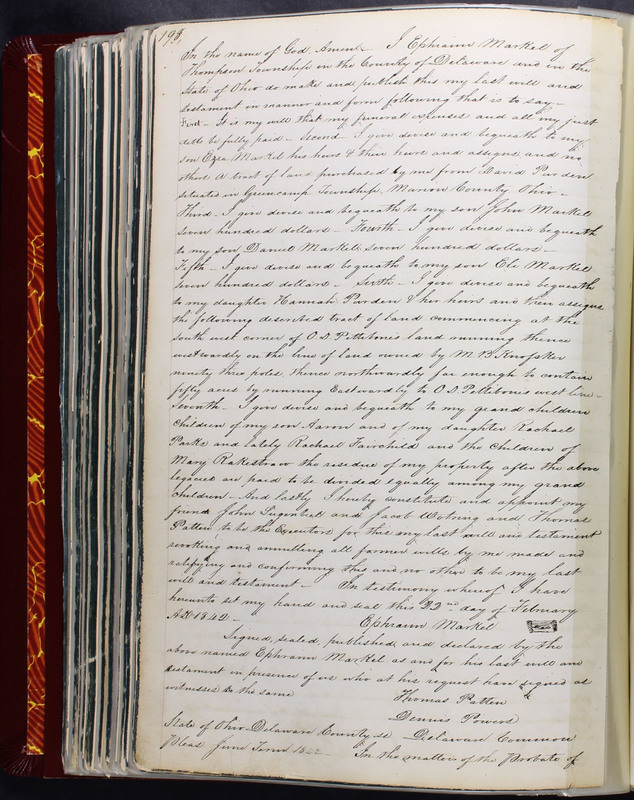 198
In the name of God, Amen. I Ephraim Markel of
Thompson Township in the County of Delaware and in the
State of Ohio do make and publish this my last will and
testament in manner and form following that is to say –
First – It is my will that my funeral expenses and all my just
debts be fully paid – Second – I give devise and bequeath to my
son Ezra Markel his heirs & their heirs and assigns, and no
others A tract of land purchased by me from David Purden
situated in Greencamp Township, Marion County Ohio –
Third – I give devise and bequeath to my son John Markel
seven hundred dollars – Fourth – I give devise and bequeath
to my son Daniel Markel seven hundred dollars –
Fifth – I give devise and bequeath to my son Eli Markel
seven hundred dollars – Sixth – I give devise and bequeath
to my daughter Hannah Purden & her heirs and their assigns
the following described tract of land commencing at the
south west corner of O. D. Pettibone's land running thence
westwardly on the line of land owned by M. B.
ninety three poles, thence northwardly far enough to contain
fifty acres by running Eastwardly to O. D. Pettibone's west line –
Seventh – I give devise and bequeath to my grand children
Children of my son Aaron and of my daughter Rachael
Parks and lately Rachael Fairchild and the Children of
Mary Rakestraw the residue of my property after the above
legacies are paid to be divided equally among my grand
Children – And lastly I hereby constitute and appoint my
friend John and Jacob and Thomas
Patten to be the Executors for this my last will and testament
revoking and annulling all former wills by me made and
ratifying and confirming this and no other to be my last
will and testament – In testimony whereof I have
hereunto set my hand and seal this 22nd day of February
AD 1842 –
Ephraim Markel Seal
Signed, sealed, published and declared by the
above named Ephraim Markel as and for his last will and
testament in presence of us who at his request have signed as
witnesses to the same
Thomas Patten
Dennis Powers
State of Ohio Delaware County ss Delaware Common
Pleas June Term 1842 In the matter of the Probate of